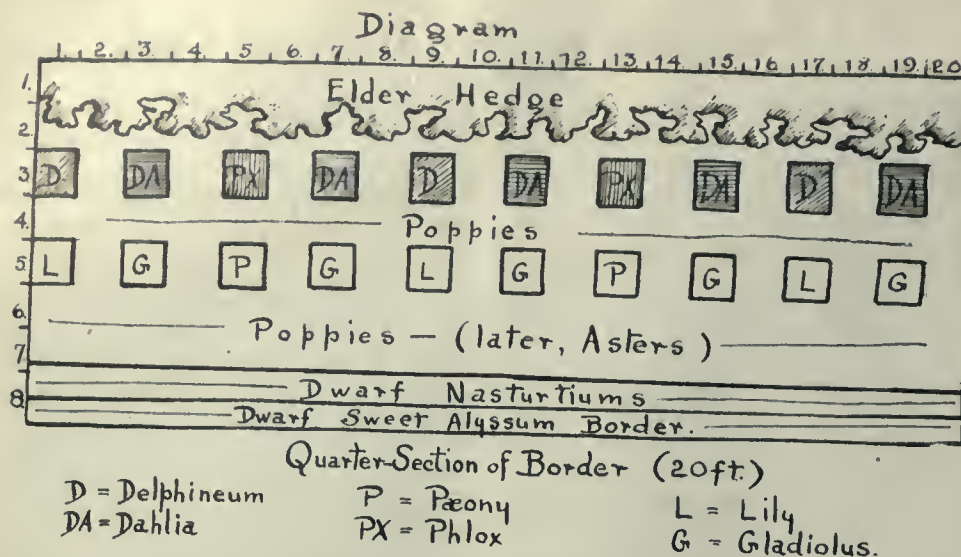 Diagram
1. 2. 3. 4. 5 6. 7. 8. 9. 10. 11. 12. 13. 14 15 16 17 18 19 20
1.
Elder Hedge
2.
3 D DA PX DA D DA PX DA D DA
4. Poppies
5. L G P G L G P G L G
6. Poppies – (later, Asters)
7
Dwarf Nasturtiums
8.
Dwarf Sweet Alyssum Border.
Quarter-Section of Border (20ft.)
D = Delphineum P = Pæony L = Lily
DA = Dahlia PX = Phlox G = Gladiolus.